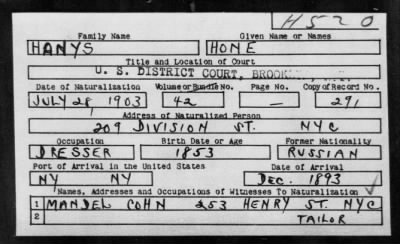 H520
Family Name Given Name or Names
HANYS HONE
Title and Location of Court
U. S. DISTRICT COURT,
Date of Naturalization Volume or Bundle No. Page No. Copy of Record No.
JULY 28 1903 42 — 291
Address of Naturalized Person
209 DIVISION ST. NYC
Occupation Birth Date or Age Former Nationality
DRESSER 1853 RUSSIAN
Port of Arrival in the United States Date of Arrival
NY NY DEC. 1893
Names, Addresses and Occupations of Witnesses To Naturalization
1 MANDEL COHN 253 HENRY ST. NYC
2 TAILOR